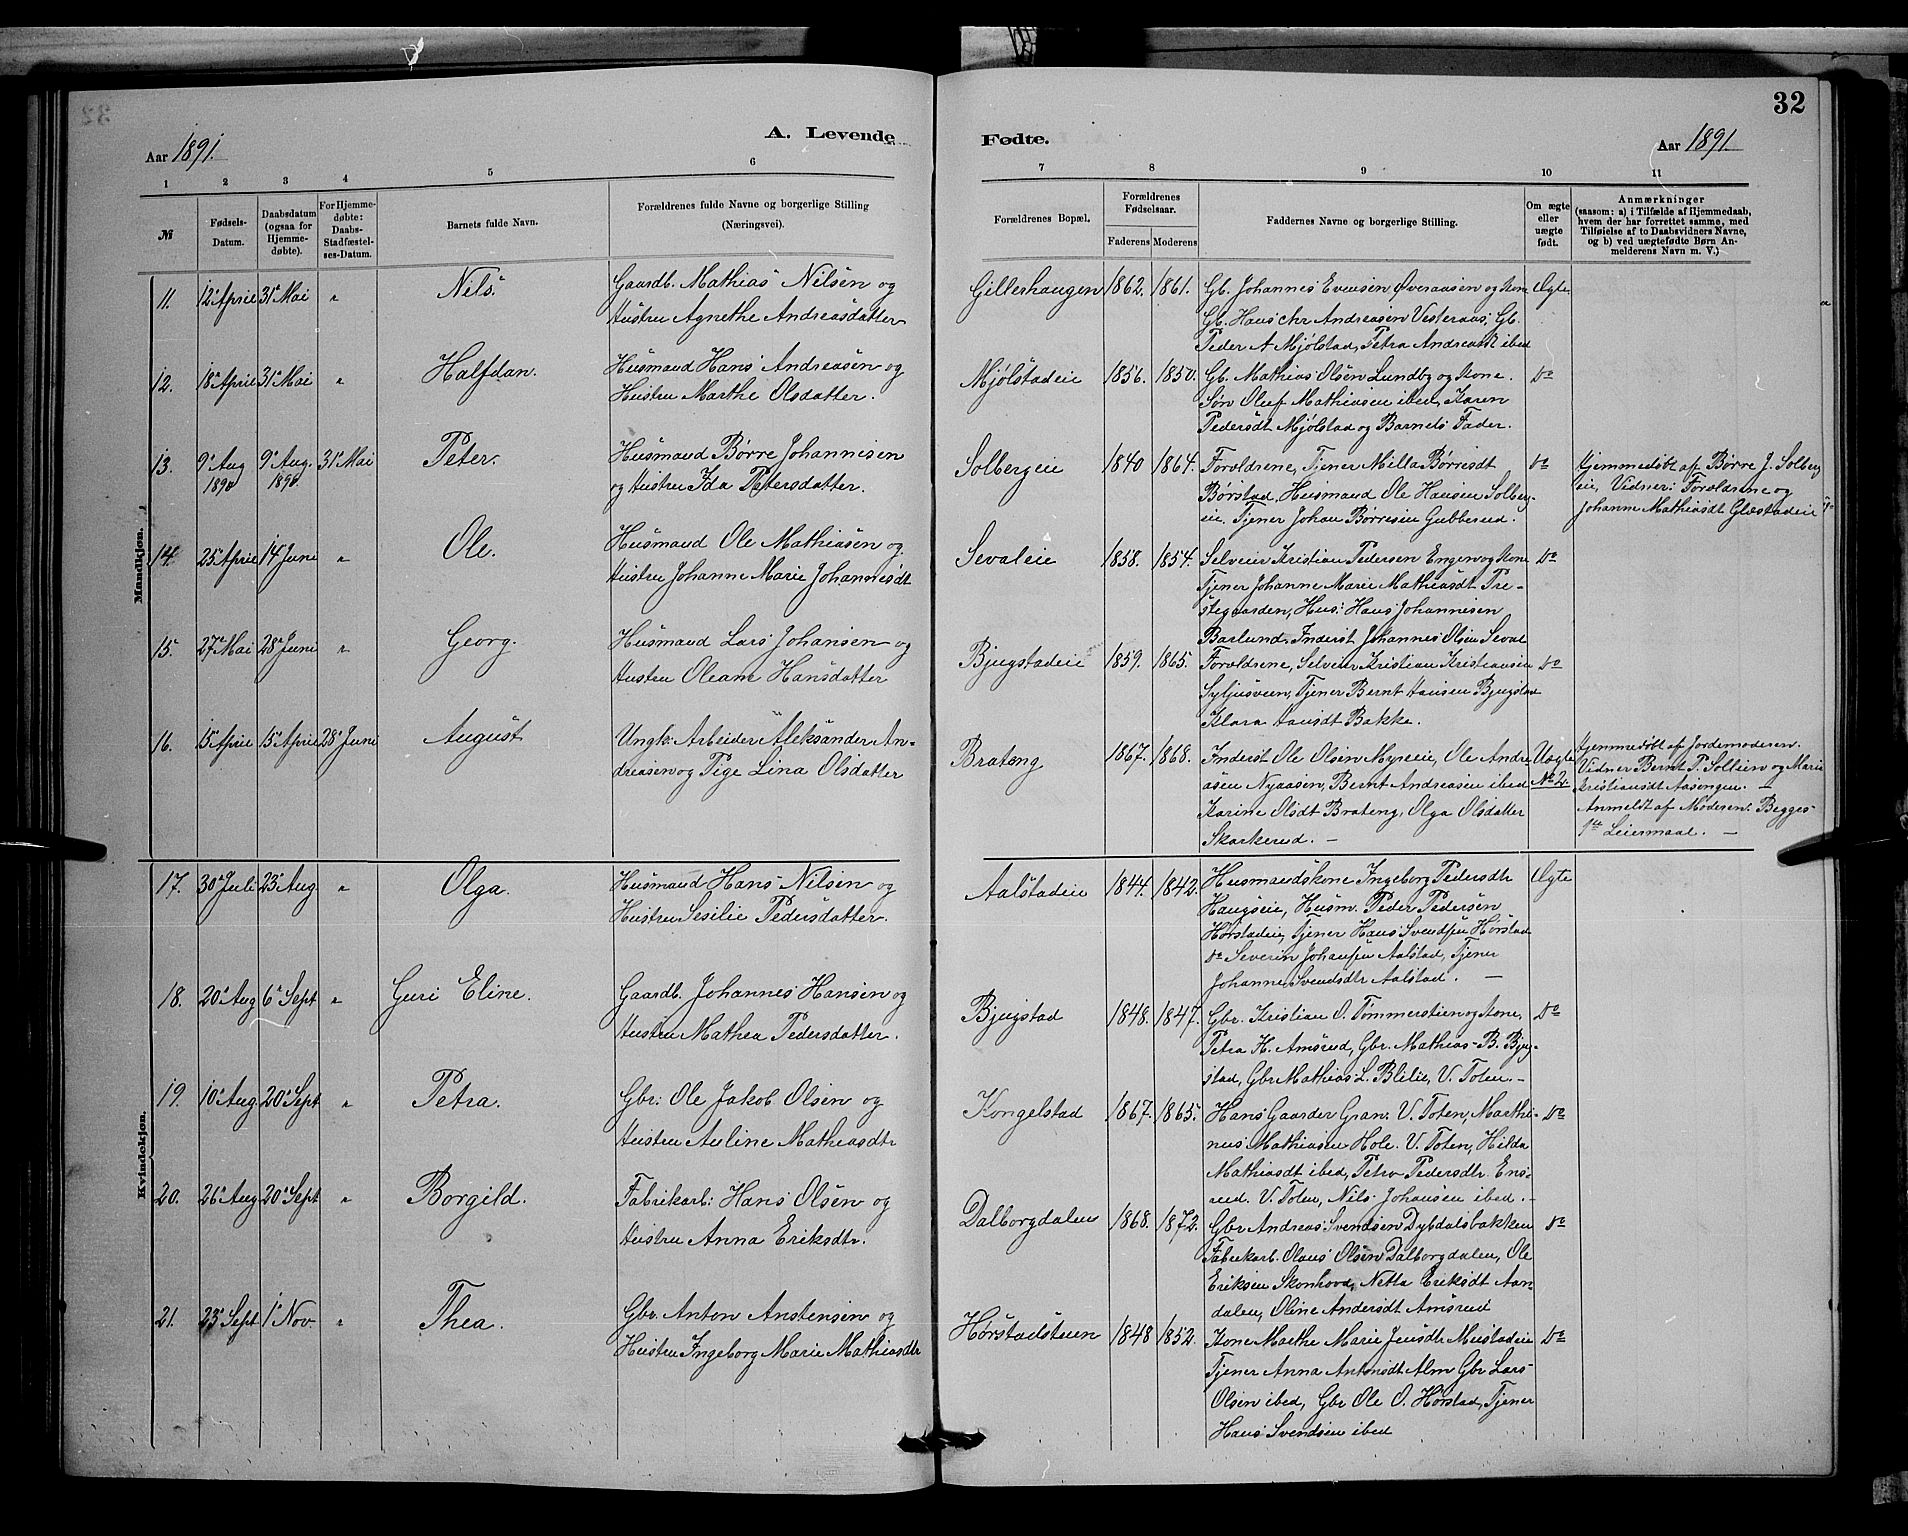 A. Levende
Aar 1891.
1 2 3 4 5 6
№
Fødsels-
Datum.
Daabsdatum
(ogsaa for
Hjemme-
døbte).
For Hjemme-
døbte:
Daabs-
Stadfæstel-
ses-Datum.
Barnets fulde Navn.
Forældrenes fulde Navne og borgerlige Stilling
(Næringsvei).
Mandkjøn.
11. 12te April 31te Mai " Nils. Gaardb. Mathias Nilsen og
Hustru Agnethe Andreasdatter
12. 18de April 31te Mai " Halfdan. Husmand Hans Andreasen og
Hustru Marthe Olsdatter.
13. 9de Aug 9de Aug. 31te Mai Peter. Husmand Børre Johannesen
1890 1890. og Hustru Ida Petersdatter.
14. 25de April 14de Juni " Ole. Husmand Ole Mathiasen og
Hustru Johanne Marie Johannesdt
15. 27de Mai 28de Juni " Georg. Husmand Lars Johansen og
Hustru Oleane Hansdatter
16. 15de April 15de April 28de Juni August Ungk: Arbeider Aleksander An-
dreasen og Pige Lina Olsdatter
Kvindekjøn.
17. 30te Juli 23de Aug " Olga. Husmand Hans Nilsen og
Hustru Sesilie Pedersdatter.
18. 20de Aug 6te Sept " Guri Eline. Gaardb. Johannes Hansen og
Hustru Mathea Pedersdatter.
19. 10de Aug 20de Sept " Petra. Gbr: Ole Jakob Olsen og
Hustru Auline Mathiasdtr
20. 26de Aug 20de Sept " Borgild. Fabrikarb: Hans Olsen og
Hustru Anna Eriksdtr.
21. 23de Sept 1ste Nov. " Thea. Gbr. Anton Anstensen og
Hustru Ingeborg Marie Mathiasdtr
32
Fødte.
Aar 1891
7 8 9 10 11
Forældrenes Bopæl.
Forældrenes
Fødselsaar.
Faderens Moderens
Faddernes Navne og borgerlige Stilling.
Om ægte
eller
uægte
født.
Anmærkninger
(saasom: a) i Tilfælde af Hjemmedaab,
hvem der har forrettet samme, med
Tilføielse af to Daabsvidners Navne,
og b) ved uægtefødte Børn An-
melderens Navn m. V.)
Gillerhaugen 1862. 1861. Gb. Johannes Evensen Øveraasen og Kone Ægte
Gb. Hans Chr Andreasen Vesteraas, Gb.
Peder A Mjølstad, Petra Andreasdt ibed
Mjølstadeie 1856. 1850. Gb. Mathias Olsen Lundby og Kone. Do
Søn Oluf Mathiasen ibed, Karen
Pedersdt Mjølstad og Barnets Fader.
Solbergeie 1840 1864. Foroldrene, Tjener Milla Børresdt Do Hjemmedøbt af Børre J. Solberg
Børstad, Husmand Ole Hansen Solberg- eie, Vidner: Foroldrene og
eie. Tjener Johan Børresen Gubberud. Johanne Mathiasdt Glæstadeie
Sevaleie 1858. 1854. Selveier Kristian Pedersen Engen og Kone Do
Tjener Johanne Marie Mathiasdt Pre-
stegaarden, Hus: Hans Johannesen
Barlund. Inderst Johannes Olsen Seval
Bjugstadeie 1859. 1865. Foroldrene, Selveier Kristian Kristiansen Do
Syljusveen, Tjener Bernt Hansen Bjugstad
Klara Hansdt Bakke.
Brateng 1867. 1868. Inderst Ole Olsen Myreie, Ole Andre Uægte Hjemmedøbt af Jordemoderen.
asen Nyaasen, Bernt Andreasen ibed No 2. Vidner Bernt P. Sollien og Marie
Karine Olsdt Brateng, Olga Olsdatter Kristiansdt Aasengen. —
Skarkerud. — Anmeldt af Moderen. Begges
1ste Leiermaal. —
Aalstadeie 1844. 1842. Husmandskone Ingeborg Pedersdtr Ægte
Haugseie, Husm. Peder Pedersen
Hørstadeie, Tjener Hans Svendsen Hørstad
Do Severin Johansen Aalstad, Tjener
Johanne Svendsdtr Aalstad. —
Bjugstad 1848. 1847. Gbr. Kristian O. Tømmerstien og Kone, Do
Petra H. Amsrud, Gbr. Mathias B. Bjug-
stad, Gbr Mathias L. Blilie, V. Toten. —
Kongelstad 1867. 1865. Hans Gaarder Gran. V. Toten, Marthi- Do
nus Mathiasen Hole. V. Toten, Hilda
Mathiasdt ibed, Petra Pedersdtr. Ens-
rud. V. Toten, Nils Johansen ibed. —
Dalborgdalen 1868. 1872. Gbr Andreas Svendsen Dybdalsbakken Do
Fabrikarb. Olaus Olsen Dalborgdalen, Ole
Eriksen Skonhovd, Netta Eriksdt Aan-
dalen, Oline Andersdt Amsrud
Hørstadsteen 1848 1852. Kone Marthe Marie Jensdtr Mustadeie Do
Tjener Anna Antonsdt Alm Gbr Lars
Olsen ibed, Gbr Ole O. Hørstad, Tjener
Hans Svendsen ibed